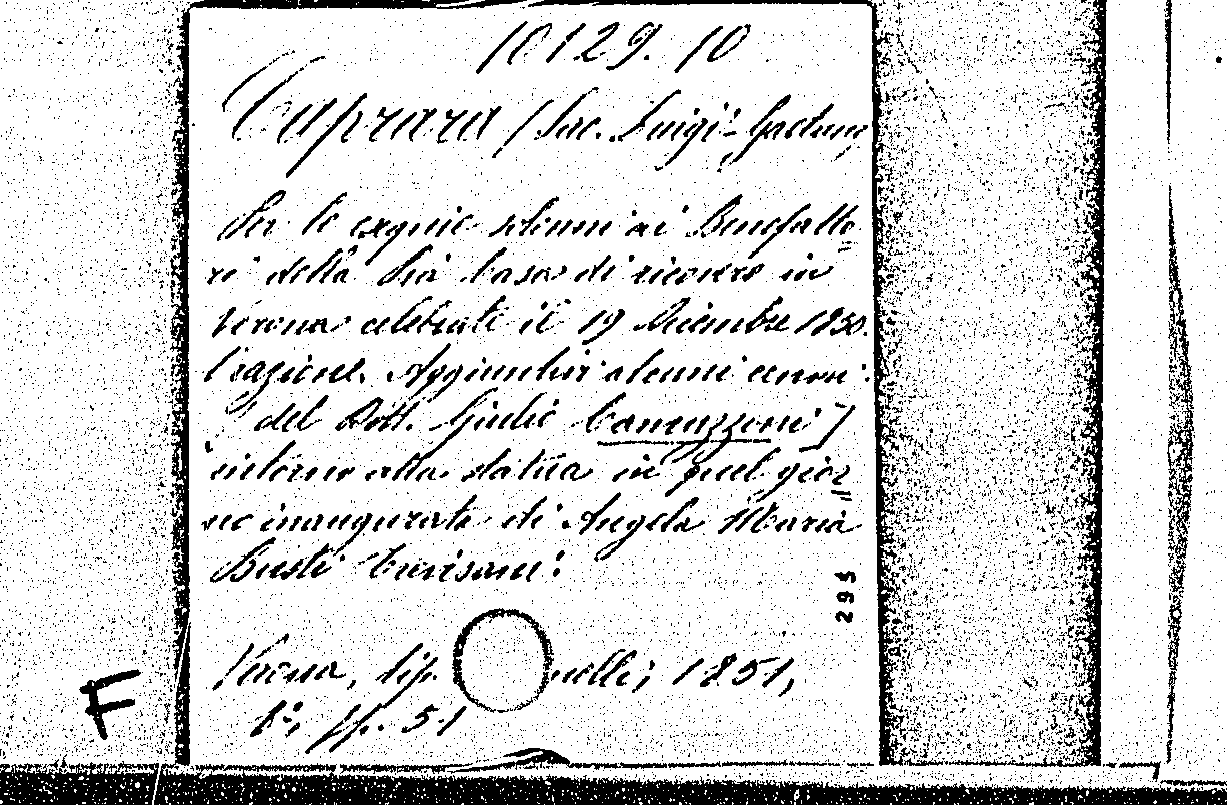 10129. 10
Caprara / Sac. Luigi-Gaetano,
Per le esequie solenni ai Benefatto=
ri della Pia Casa di ricovero in
Verona celebrate il 19 Dicembre 1850.
Orazione. Aggiuntivi alcuni cenni
del Dott. Giulio Camuzzoni]
intorno alla statua in quel gior=
no inaugurata di Angela Maria
Busti Trevisani:
Verona, tip. 1851,
8°, pp. 51
295
F